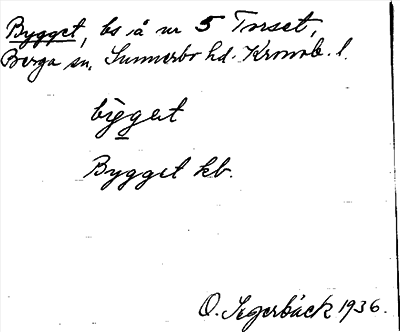 Bygget, bs å nr 5 Torset,
Berga sn. Sunnerbo hd. Kronob. l.
byget
Bygget kb.
O. Segerbäck 1936.